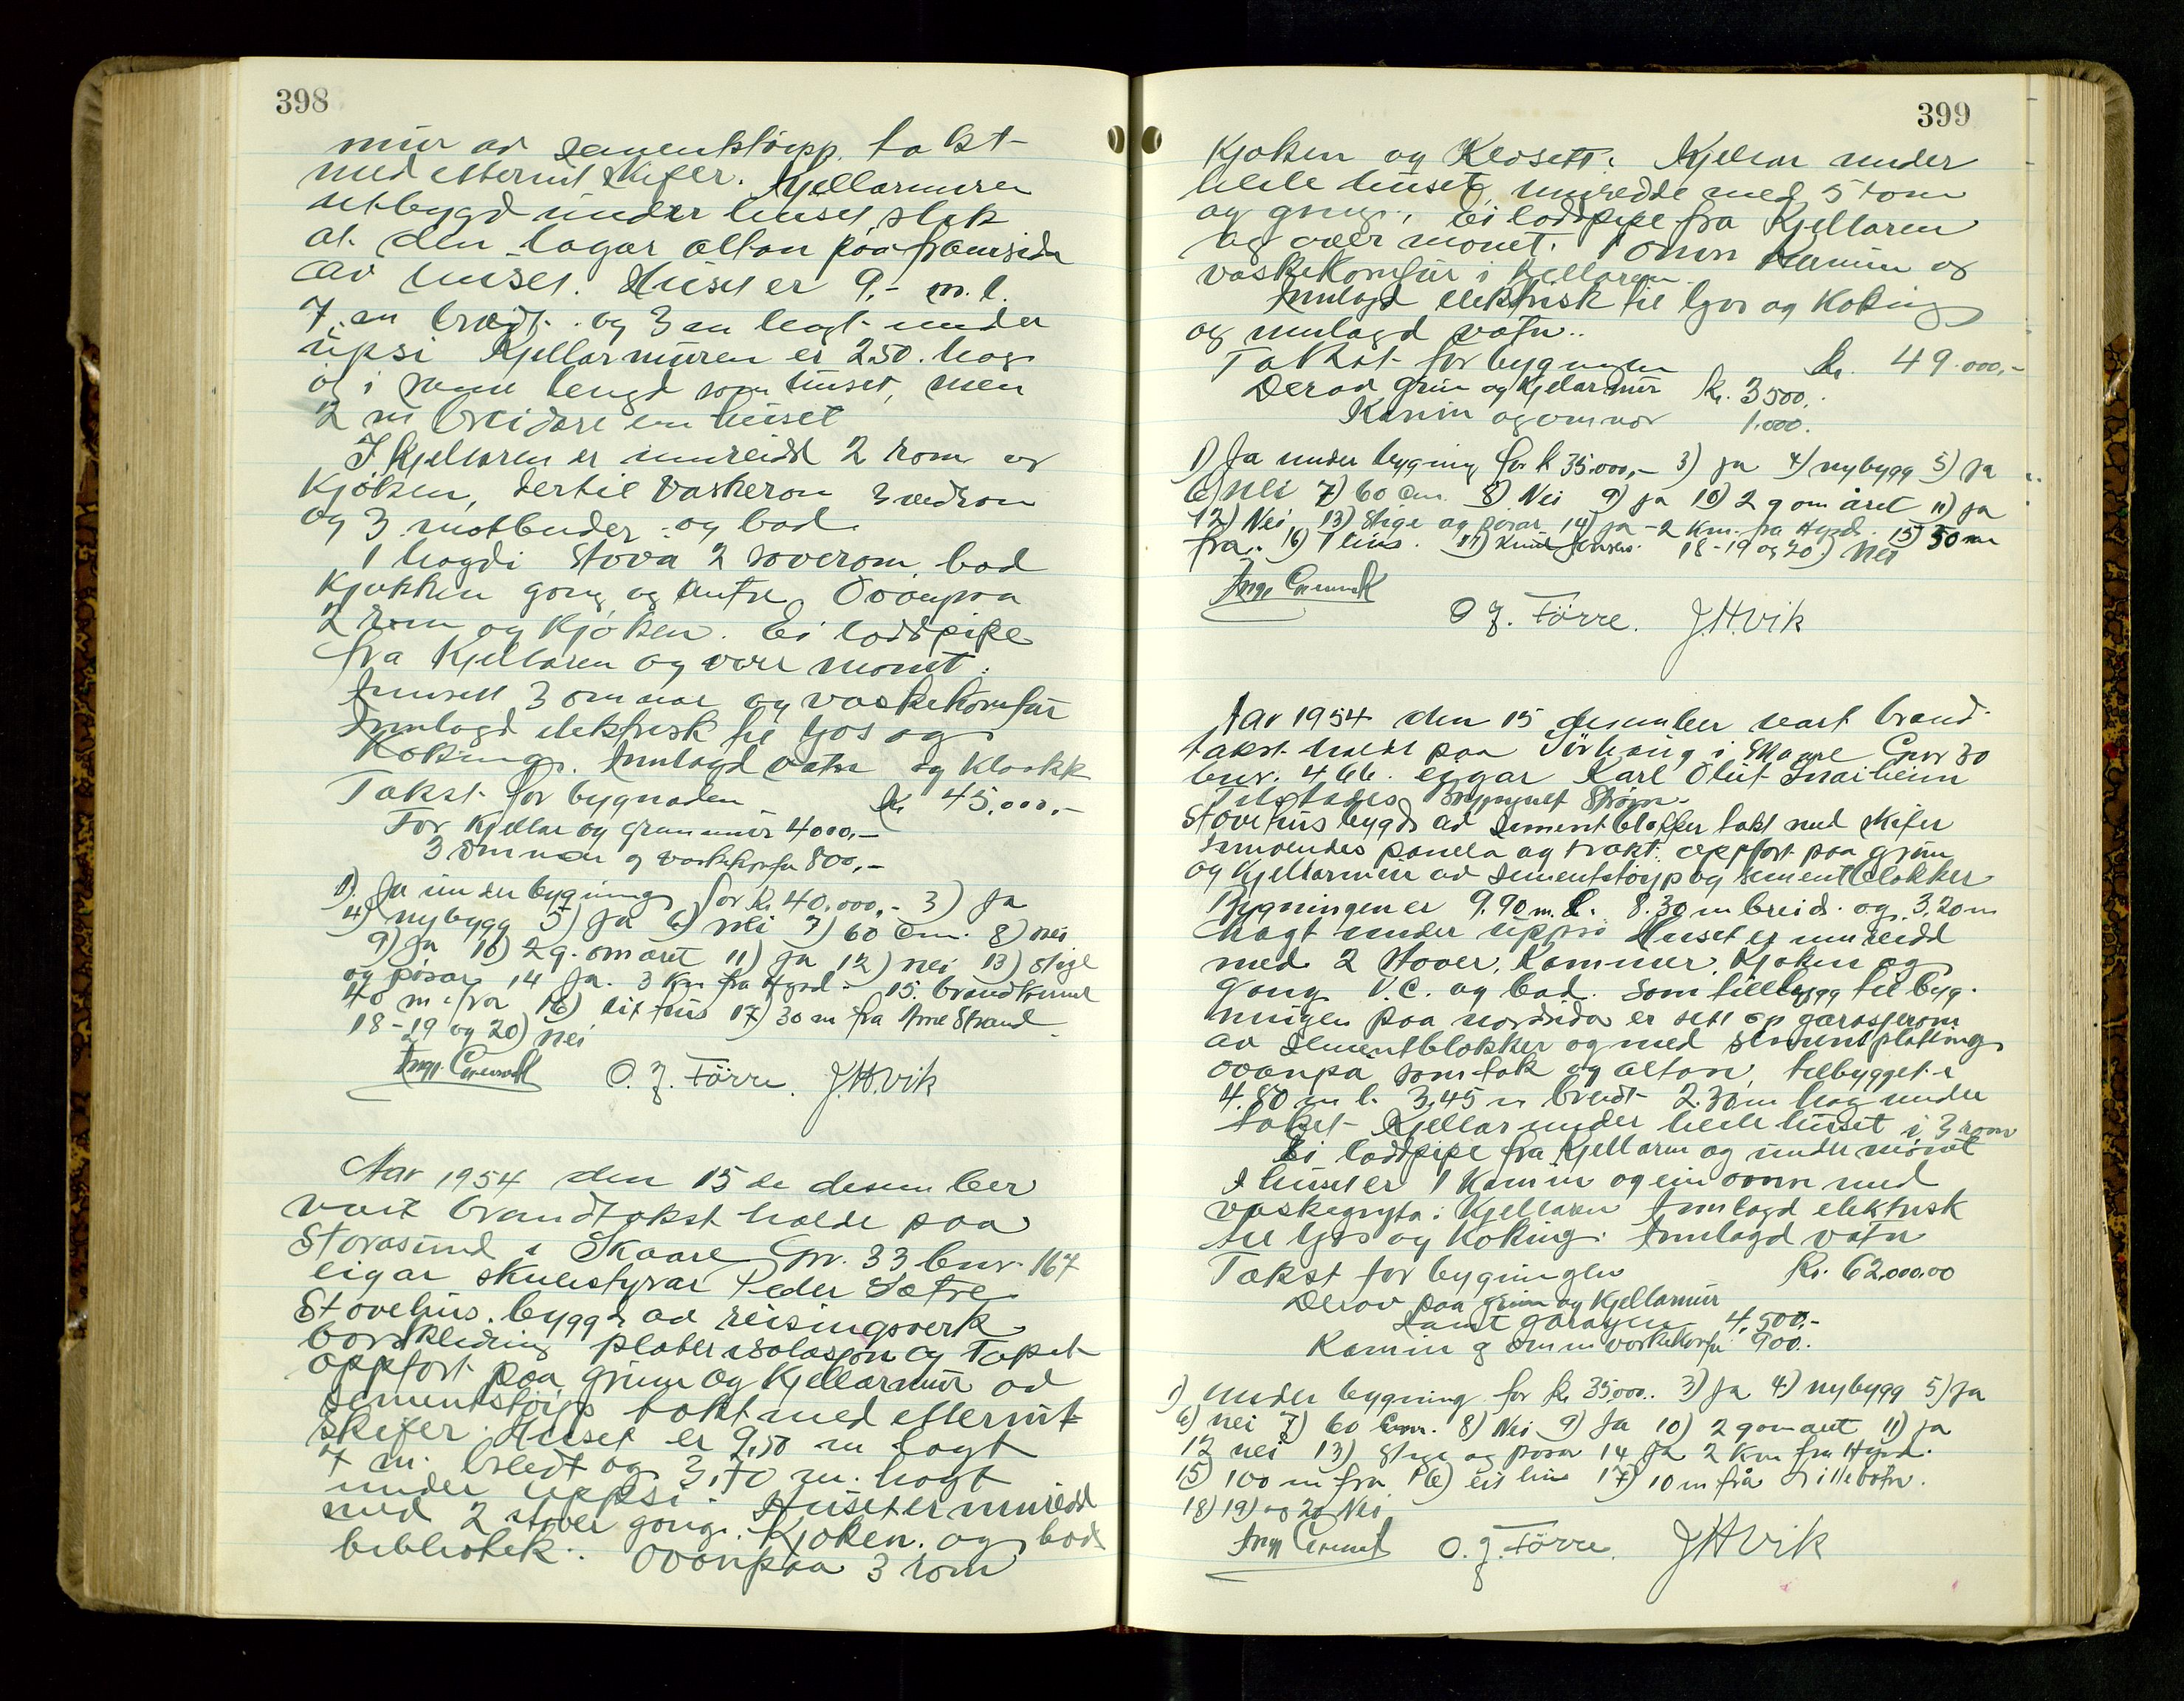 398
mur av sementstøypp. takt
med etternit skifer. Kjellarmuren
utbygd under huset slik
at den lagar altan paa framsida
av huset. Huset er 9,- m. l.
7 m breidt. og 3 m høgt under
upsi Kjellarmuren er 2.50. høg
og i same lengd som huset, men
2 m breidare enn huset
I kjellaren er innreidd 2 rom og
Kjøken, dertil vaskerom 3 vedrom
og 3 matbuder. og bad.
1 høgdi Stova 2 soverom, bad
Kjøkken gong og Entre. Ovanpaa
2 rom og Kjøken. Ei loddpipe
fra Kjellaren og over mønet.
Innsett 3 omnar og vaskekomfur
Innlagd elektrisk til ljos og
Koking. Innlagd vatn og Kloakk
Takst for bygnaden kr 45,000,-
For Kjellar og grunnmur 4000,-
3 omnar og vaskekomfur 800,-
1) Ja under bygning for kr. 40,000,- 3) Ja
4) nybygg 5) Ja 6) nei 7) 60 cm. 8) nei
9) Ja 10) 2 g. om aret 11) Ja 12) nei 13) stige
og pøsar 14 Ja. 3 Km fra Hgsd. 15. brandkumme
40 m fra 16) eit hus 17) 30 m fra Arne Strand
18-19 og 20) nei
O. J. Førre. J.H. Vik
Aar 1954 den 15 de desember
vart brandtakst halde paa
Storasund i Skaare Gnr. 33 bnr. 167
eigar skulestyrar Peder Sætre
Stovehus. byggd av reisingsverk
bordkleding plater isolasjon og Tapet
oppført paa grunn og Kjellarmur av
Sementstøyp takt med etternit
skifer. Huset er 9,50 m langt
7 m. breidt og 3,70 m. høgt
under uppsi. Huset er innreidd
med 2 stover gong. Kjøken. og bad
bibliotek. Ovanpaa 3 rom
399
Kjøken og Klosett. Kjellar under
heile huset, innreidde med 5 rom
og gong. Ei loddpipe fra Kjellaren
og over mønet. 1 omn Kamin og
vaskekomfur i Kjellaren
Innlagd elektrisk til ljos og Koking
og innlagd vatn..
Takst for bygningen kr. 49.000,-
Derav grunn og Kjellarmur kr. 3500.
Kamin og omnar 1.000.
1) Ja under bygning for k 35.000,- 3) ja 4) nybygg 5) ja
6) nei 7) 60 cm. 8) Nei 9) ja 10) 2 g om året 11) ja
12) Nei 13) Stige og pøsar 14) ja - 2 Km. fra Hgsd. 15) 50 m
fra. 16) 1 hus. 17) Knut 18-19 og 20) Nei
O J. Førre. J.H. Vik
Aar 1954 den 15 desember vart brand-
takst halde paa i Skaare Gnr 30
bnr. 466. eigar Karl Oluf
Stovehus bygd av sementblokker takt med skifer
innvendes panela og trakt. oppført paa grunn
og Kjellarmur av Sementstøyp og sementblokker
Bygningen er 9.90 m. l. 8.30 m breid. og 3,20 m
høgt under uppsi Huset er innreidd
med 2 Stover, Kammer, Kjøken og
Gong V.C. og bad. Som tillbygg til byg-
ningen paa nordsida er sett op garasjerom
av sementblokker og med sementplatting
ovanpå som tak og altan, tilbygget er
4.80 m l. 3,45 m breidt 2.30 m høg under
taket. Kjellar under heile huset i 3 rom
Ei loddpipe fra Kjellaren og under mønet
I huset er 1 Kamin og ein omn med
vaskegryta i Kjellaren Innlagd elektrisk
til ljos og Koking. Innlagd vatn
Takst for bygningen kr. 62,000,00
Derav paa grunn og Kjellarmur
samt garagen 4,500,-
Kamin og omn vaskekomfur 900.
1) under bygning for kr 35000.. 3) Ja 4) nybygg 5) Ja
6) nei 7) 60 cm. 8) Nei 9) Ja 10) 2 g om aret 11) ja
12 nei 13) stige og pøsar 14 Ja 2 Km fra Hgsd.
15) 100 m fra 16) eit hus 17) 10 m frå
18) 19) og 20 Nei
O. J. Førre. J H Vik